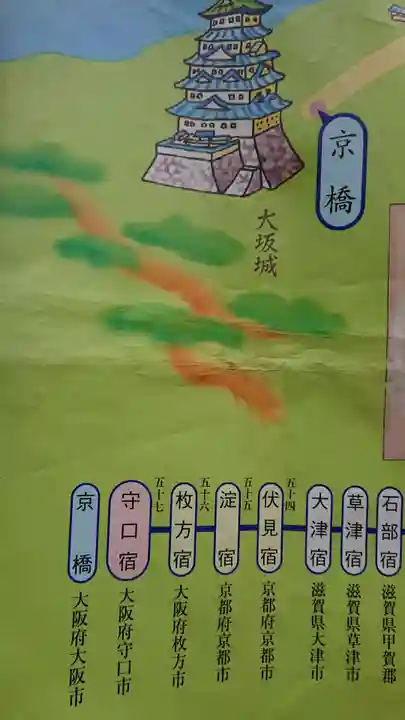 京橋
大坂城
石部宿
滋賀県甲賀郡
草津宿
滋賀県草津市
大津宿
滋賀県大津市
五十四
伏見宿
京都府京都市
五十五
淀宿
京都府京都市
五十六
枚方宿
大阪府枚方市
五十七
守口宿
大阪府守口市
京橋
大阪府大阪市